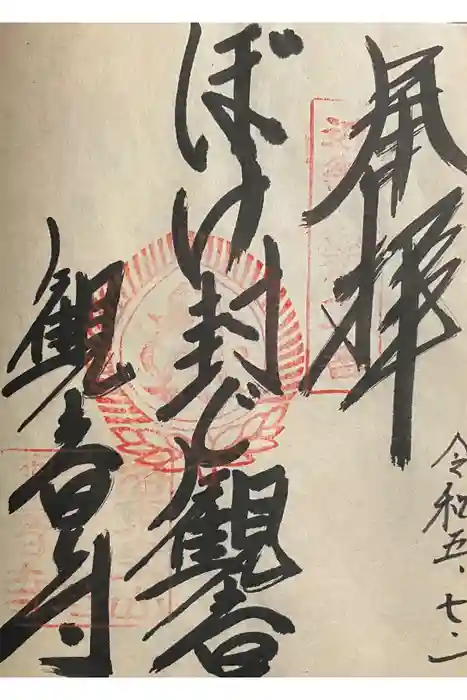 奉拝
令和五.七.一
ぼけ封じ観音
観音寺